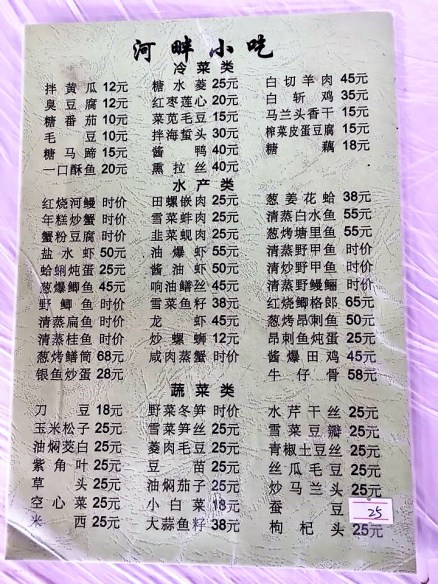 河畔小吃
冷菜类
拌黄瓜 12元 糖水菱 25元 白切羊肉 45元
臭豆腐 12元 红枣莲心 20元 白斩鸡 35元
糖番茄 10元 菜苋毛豆 15元 马兰头香干 15元
毛豆 10元 拌海蜇头 30元 榨菜皮蛋豆腐 15元
糖马蹄 15元 酱鸭 40元 糖藕 18元
一口酥鱼 20元 熏拉丝 40元
水产类
红烧河鳗 时价 田螺嵌肉 25元 葱姜花蛤 38元
年糕炒蟹 时价 雪菜蚌肉 25元 清蒸白水鱼 55元
蟹粉豆腐 时价 韭菜蚬肉 25元 葱烤塘里鱼 55元
盐水虾 50元 油爆虾 55元 清蒸野甲鱼 时价
蛤蜊炖蛋 25元 酱油虾 50元 清炒野甲鱼 时价
葱爆鲫鱼 45元 响油鳝丝 45元 清蒸野鳗鲡 时价
野鲫鱼 时价 雪菜鱼籽 38元 红烧鲫格郎 65元
清蒸扁鱼 时价 龙虾 45元 葱烤昂刺鱼 50元
清蒸桂鱼 时价 炒螺蛳 12元 昂刺鱼炖蛋 25元
葱烤鳝筒 68元 咸肉蒸蟹 时价 酱爆田鸡 45元
银鱼炒蛋 28元 牛仔骨 58元
蔬菜类
刀豆 18元 野菜冬笋 时价 水芹干丝 25元
玉米松子 25元 雪菜笋丝 25元 雪菜豆瓣 25元
油焖茭白 25元 菱肉毛豆 25元 青椒土豆丝 25元
紫角叶 25元 豆苗 25元 丝瓜毛豆 25元
草头 25元 油焖茄子 25元 炒马兰头 25元
空心菜 25元 小白菜 18元 蚕豆 25
米西 25元 大蒜鱼籽 38元 枸杞头 25元